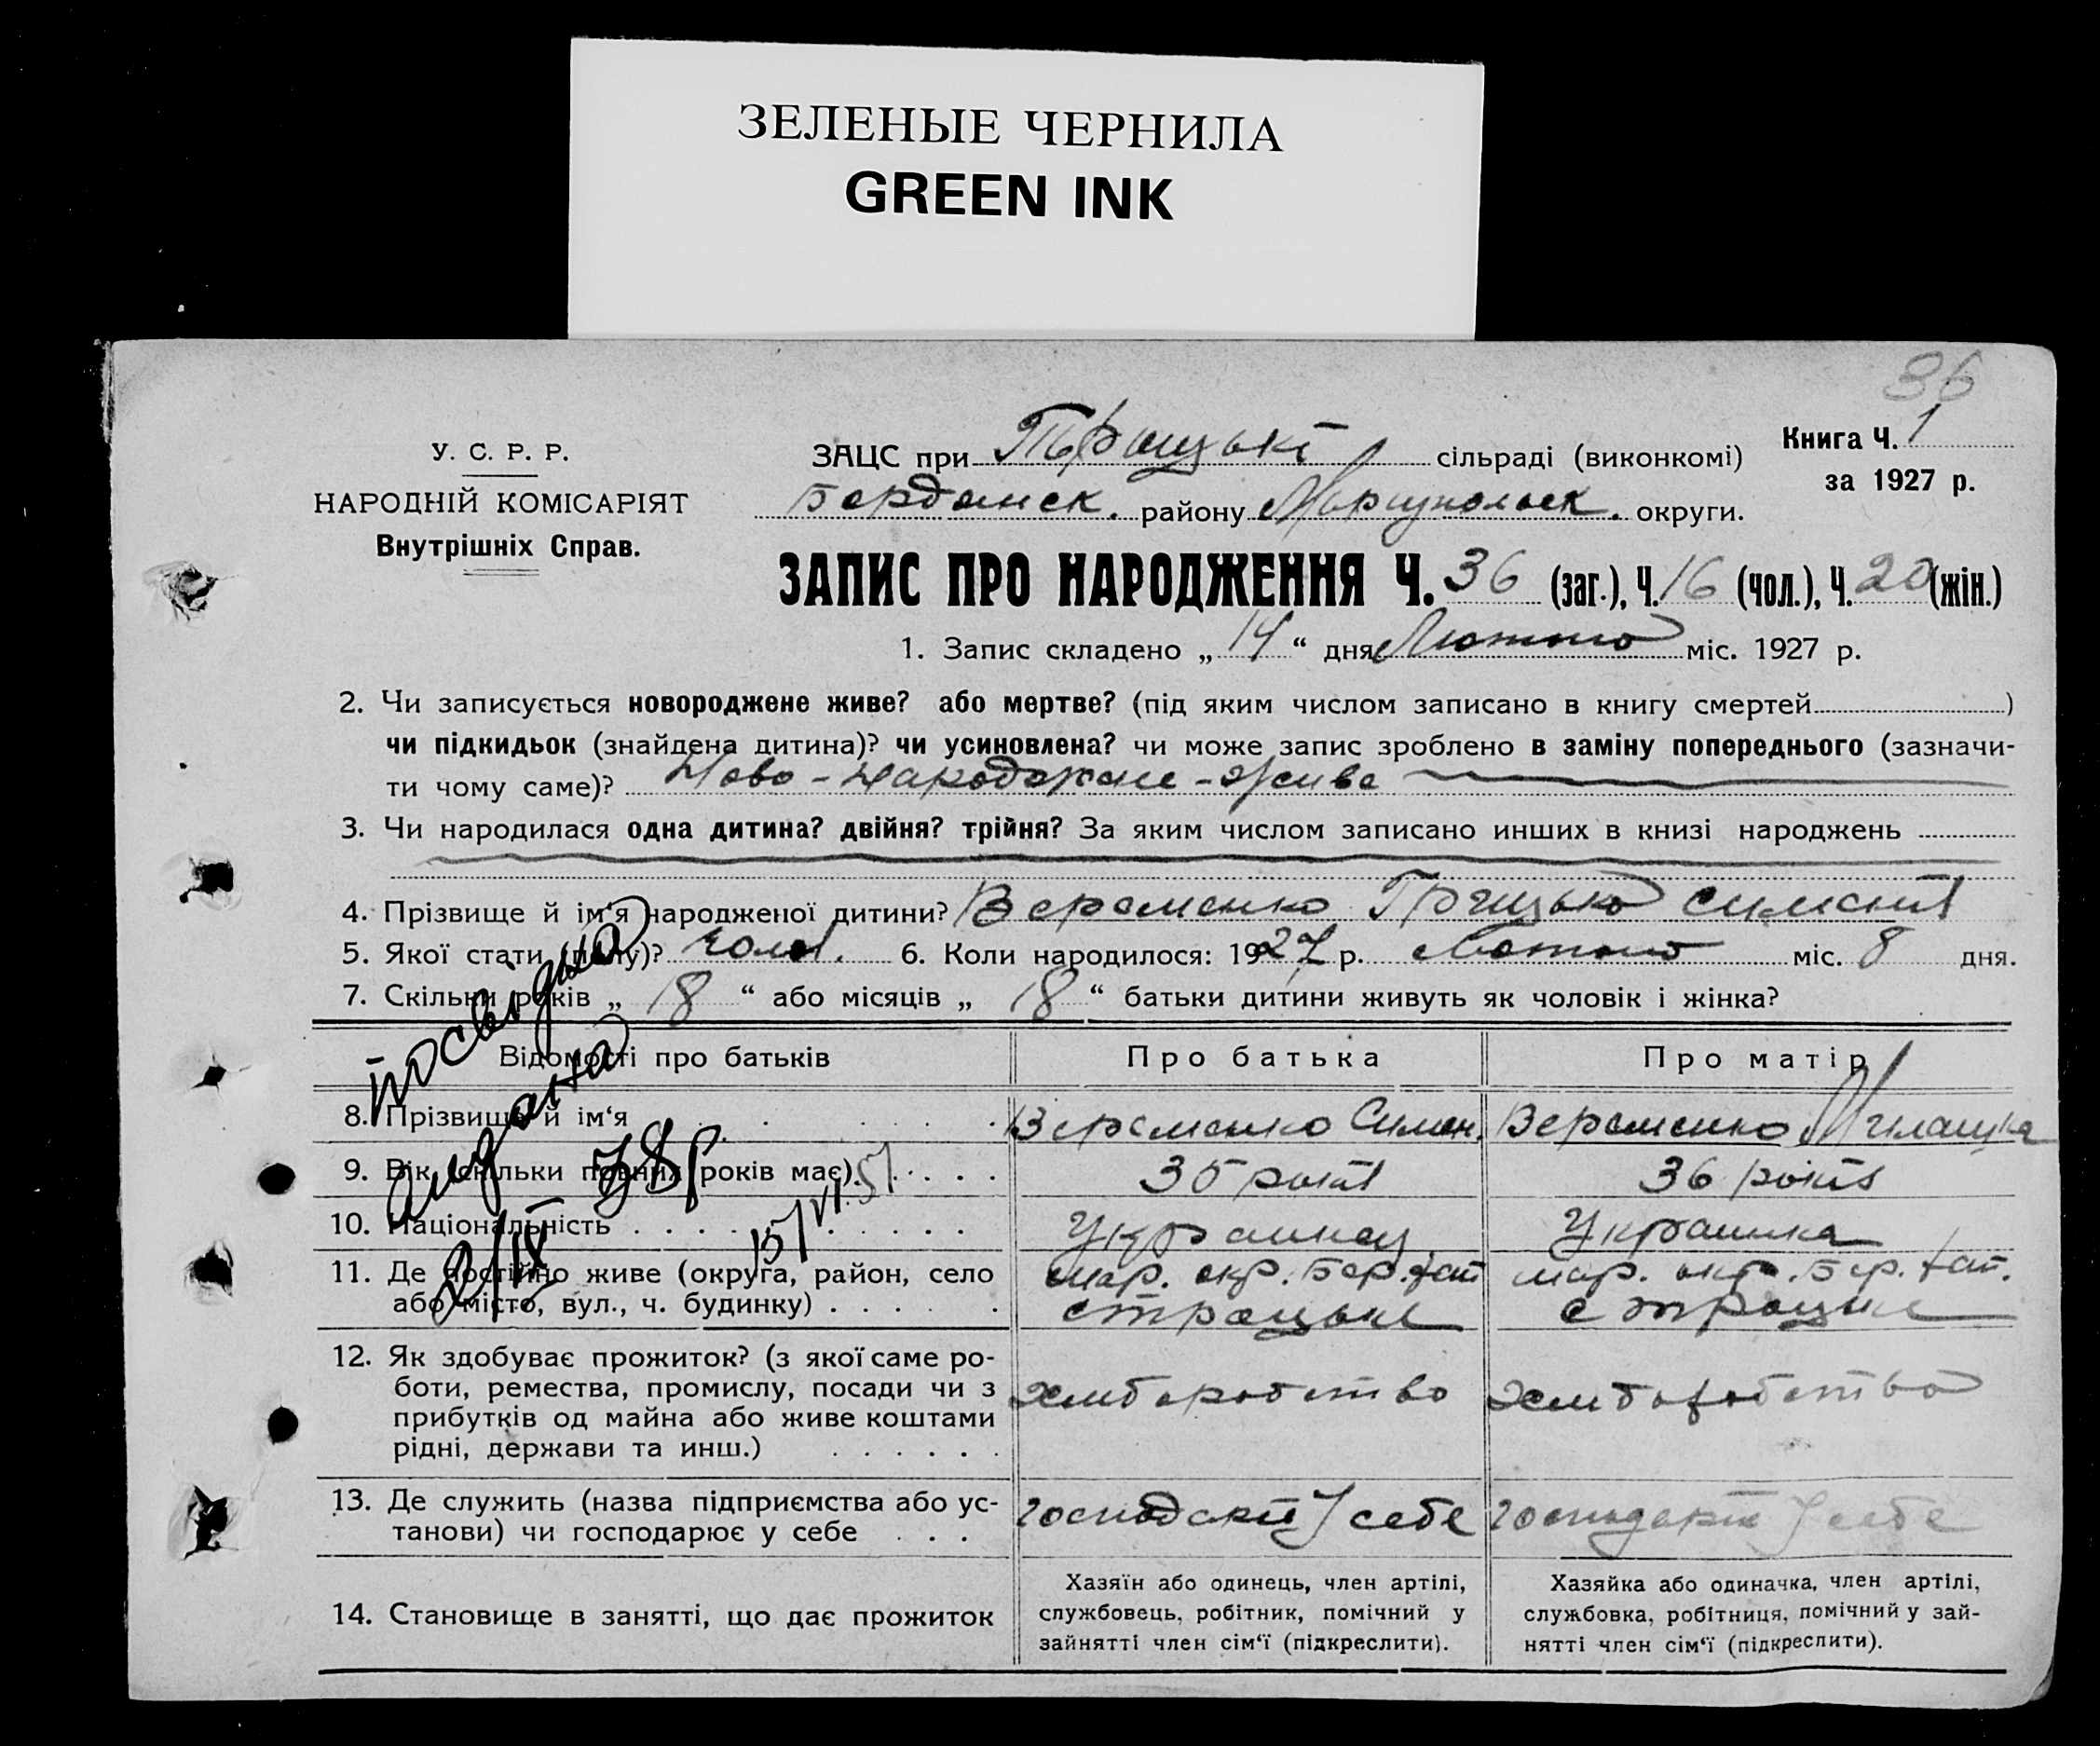 ЗЕЛЕНЫЕ ЧЕРНИЛА
GREEN INK
36
У. С. Р. Р.
НАРОДНІЙ КОМІСАРІЯТ
Внутрішніх Справ.
ЗАЦС при Троцькі сільраді (виконкомі)
Книга Ч. 1
за 1927 р.
Бердянск. району Маріупольск. округи.
ЗАПИС ПРО НАРОДЖЕННЯ Ч. 36 (заг.), Ч. 16 (чол.), Ч. 20 (жін.)
1. Запис складено „ 14 “ дня Лютого міс. 1927 р.
2. Чи записується новороджене живе? або мертве? (під яким числом записано в книгу смертей )
чи підкидьок (знайдена дитина)? чи усиновлена? чи може запис зроблено в заміну попереднього (зазначи-
ти чому саме)? Ново-народжене-живе
3. Чи народилася одна дитина? двійня? трійня? За яким числом записано инших в книзі народжень
4. Прізвище й ім‘я народженої дитини? Веременко Грицько
5. Якої стати (полу)? чолов. 6. Коли народилося: 1927 р. Лютого міс. 8 дня.
7. Скільки років „ 18 “ або місяців „ 18 “ батьки дитини живуть як чоловік і жінка?
Відомості про батьків Про батька Про матір
8. Прізвище й ім‘я Веременко Симон. Веременко
9. Вік (скільки повних років має) 35 років 36 років
10. Національність Українец Українка
11. Де постійно живе (округа, район, село Мар. окр. Бер. Мар. окр. Бер.
або місто, вул., ч. будинку) с троцьке с троцьке
12. Як здобуває прожиток? (з якої саме ро-
боти, ремества, промислу, посади чи з хліборобство хліборобство
прибутків од майна або живе коштами
рідні, держави та инш.)
13. Де служить (назва підприємства або ус- у себе у себе
танови) чи господарює у себе
14. Становище в занятті, що дає прожиток
Хазяїн або одинець, член артілі,
службовець, робітник, помічний у
зайнятті член сім‘ї (підкреслити).
Хазяйка або одиначка, член артілі,
службовка, робітниця, помічний у зай-
нятті член сім‘ї (підкреслити).
2/IX 38р
15/VI.51